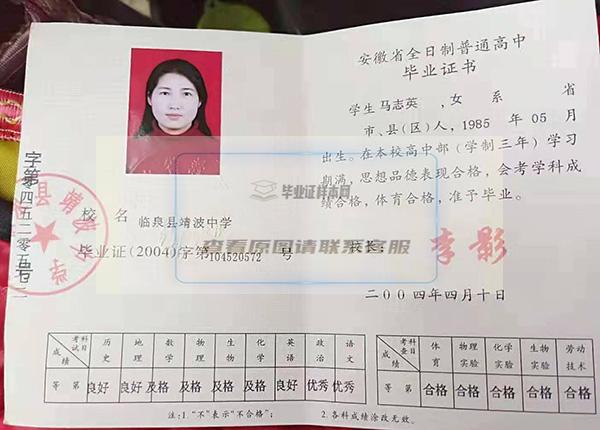 安徽省全日制普通高中
毕业证书
学生马志英 ,女 系 省
市、县(区)人,1985 年 05 月
出生。在本校高中部(学制三年)学习
期满,思想品德表现合格,会考学科成
绩合格,体育合格,准予毕业。
校长: 李影
二00四年四月十日
校 名 临泉县靖波中学
毕业证(2004)字第104520572 号
毕业证样本网
查看原图请联系客服
考试科目 历史 地理 数学 物理 生物 化学 英语 政治 语文
成绩
等 第 良好 良好 及格 及格 及格 及格 良好 优秀 优秀
考查科目 体育 物理实验 化学实验 生物实验 劳动技术
成绩
等 第 合格 合格 合格 合格 合格
注:1."不"表示"不合格"; 2.各科成绩涂改无效。